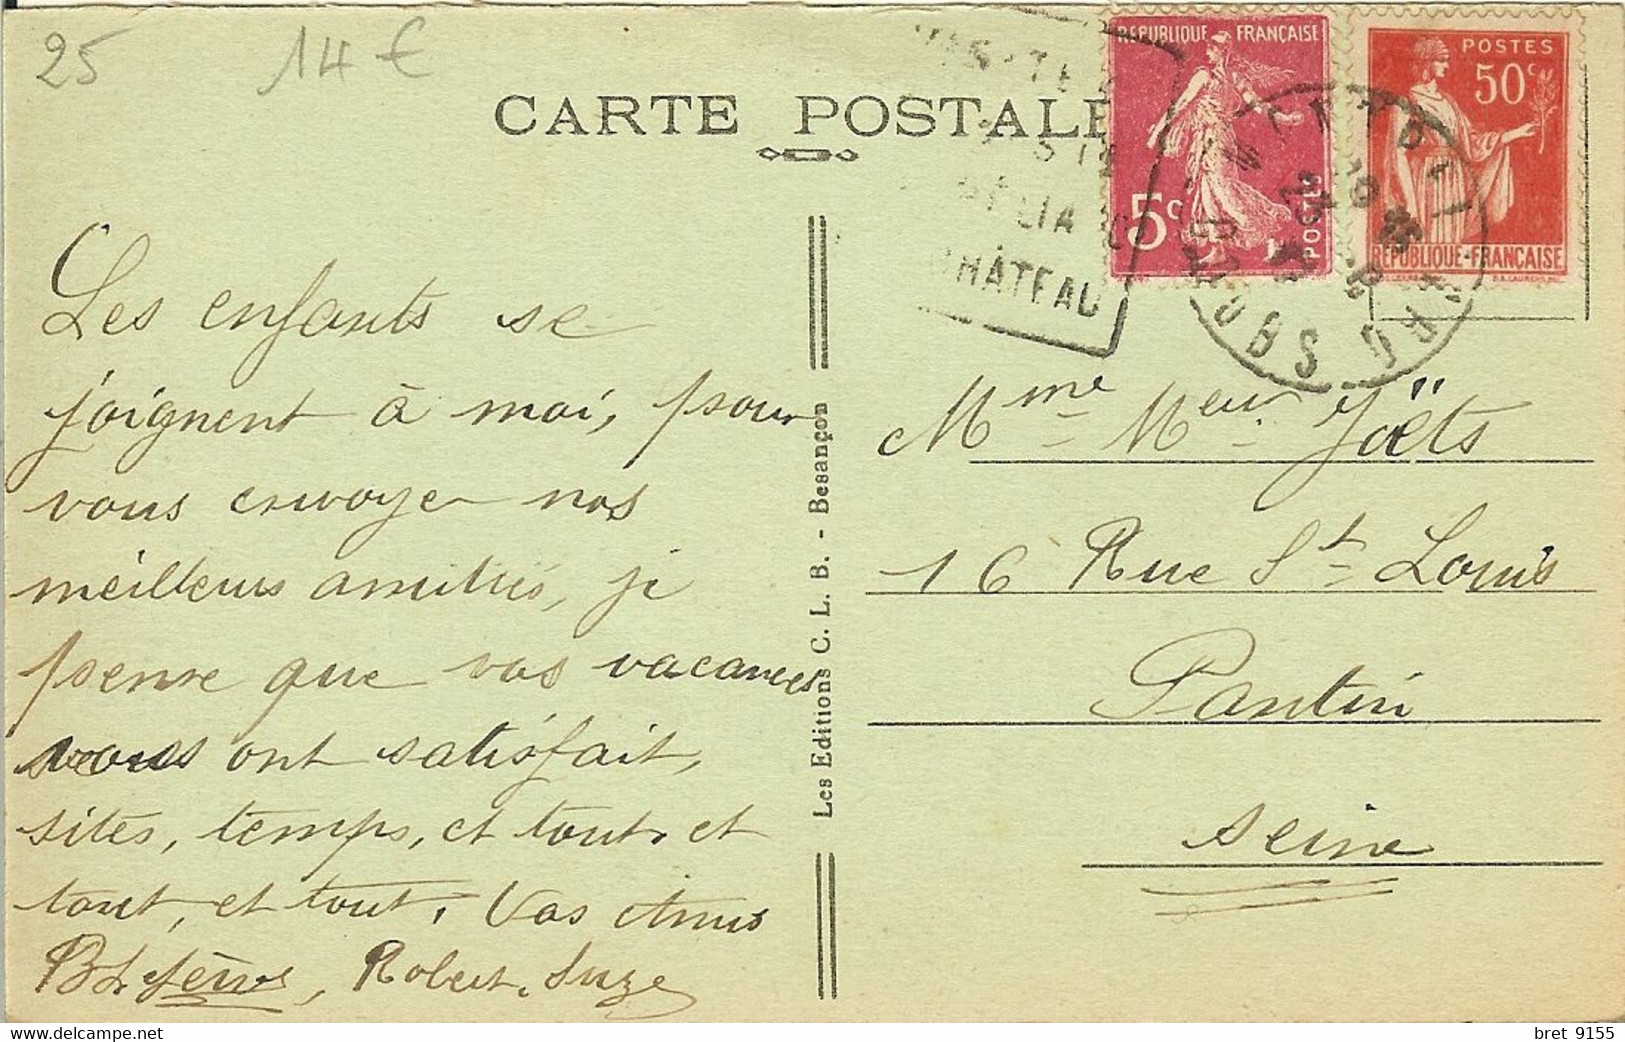 25 14€
CARTE POSTALE
RÉPUBLIQUE FRANÇAISE
5c
POSTES
POSTES
50c
RÉPUBLIQUE-FRANÇAISE
CHÂTEAU
DOUBS
Les enfants se
joignent à moi, pour
vous envoyer nos
meilleurs amitiés, je
pense que vos vacances
vous ont satisfait,
sites, temps, et tout et
tout, et tout. Vos Amis
Robert, Suze
Les Editions C. L. B. - Besançon
Mme Meur Joëts
16 Rue St Louis
Pantin
Seine
bret 9155